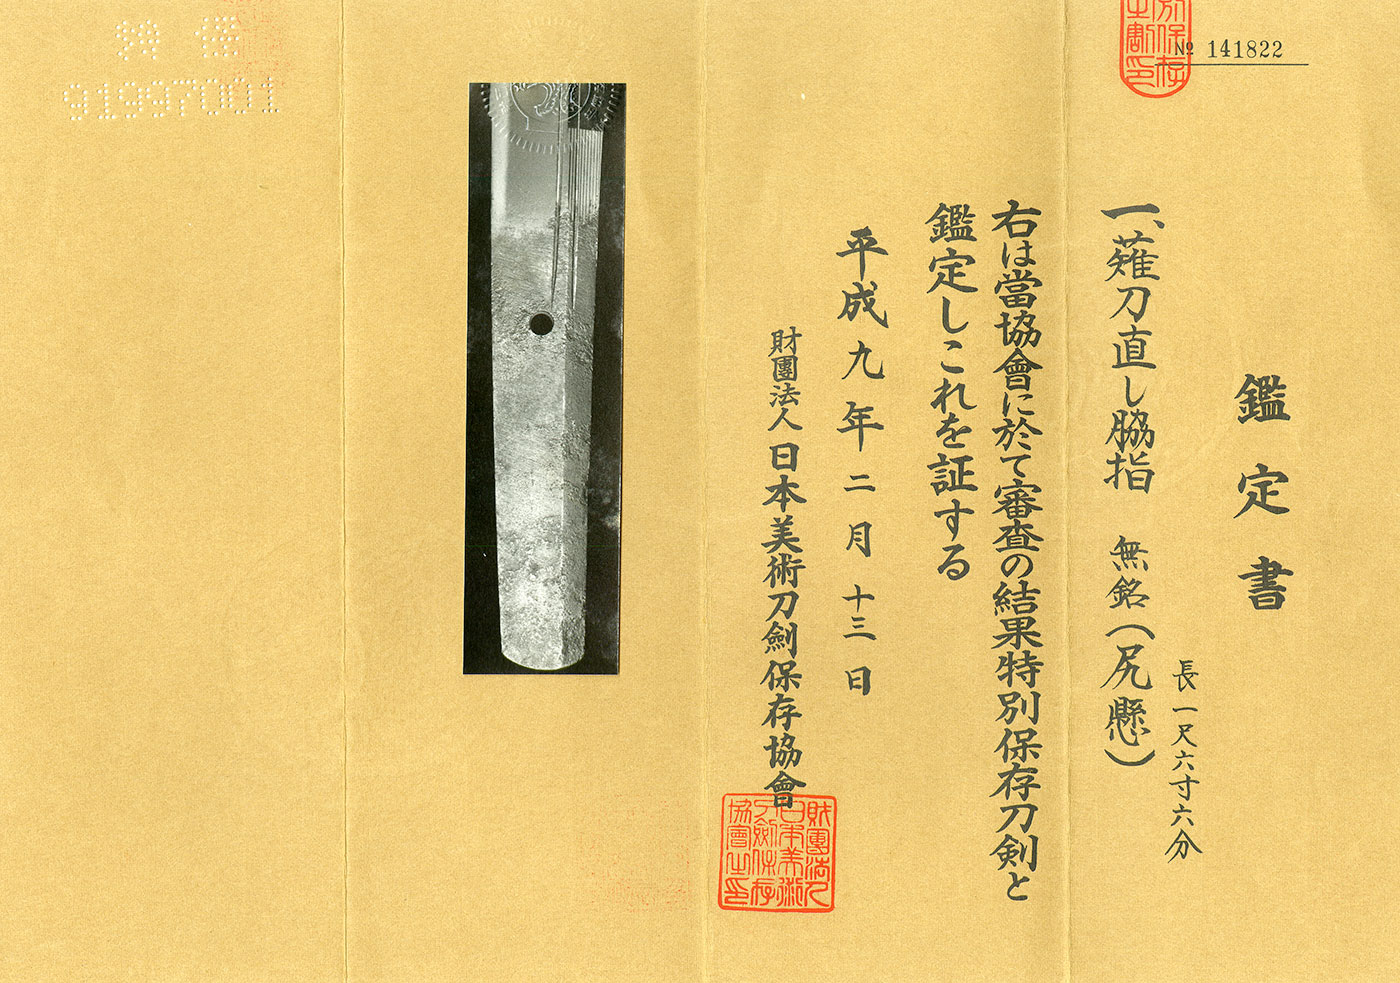 № 141822
鑑定書
一、薙刀直し脇指 無銘(尻懸)
長一尺六寸六分
右は當協會に於て審査の結果特別保存刀剣と
鑑定しこれを証する
平成九年二月十三日
財團法人日本美術刀劍保存協會
財團法人
日本美術
刀劍保存
協會之印
91997001